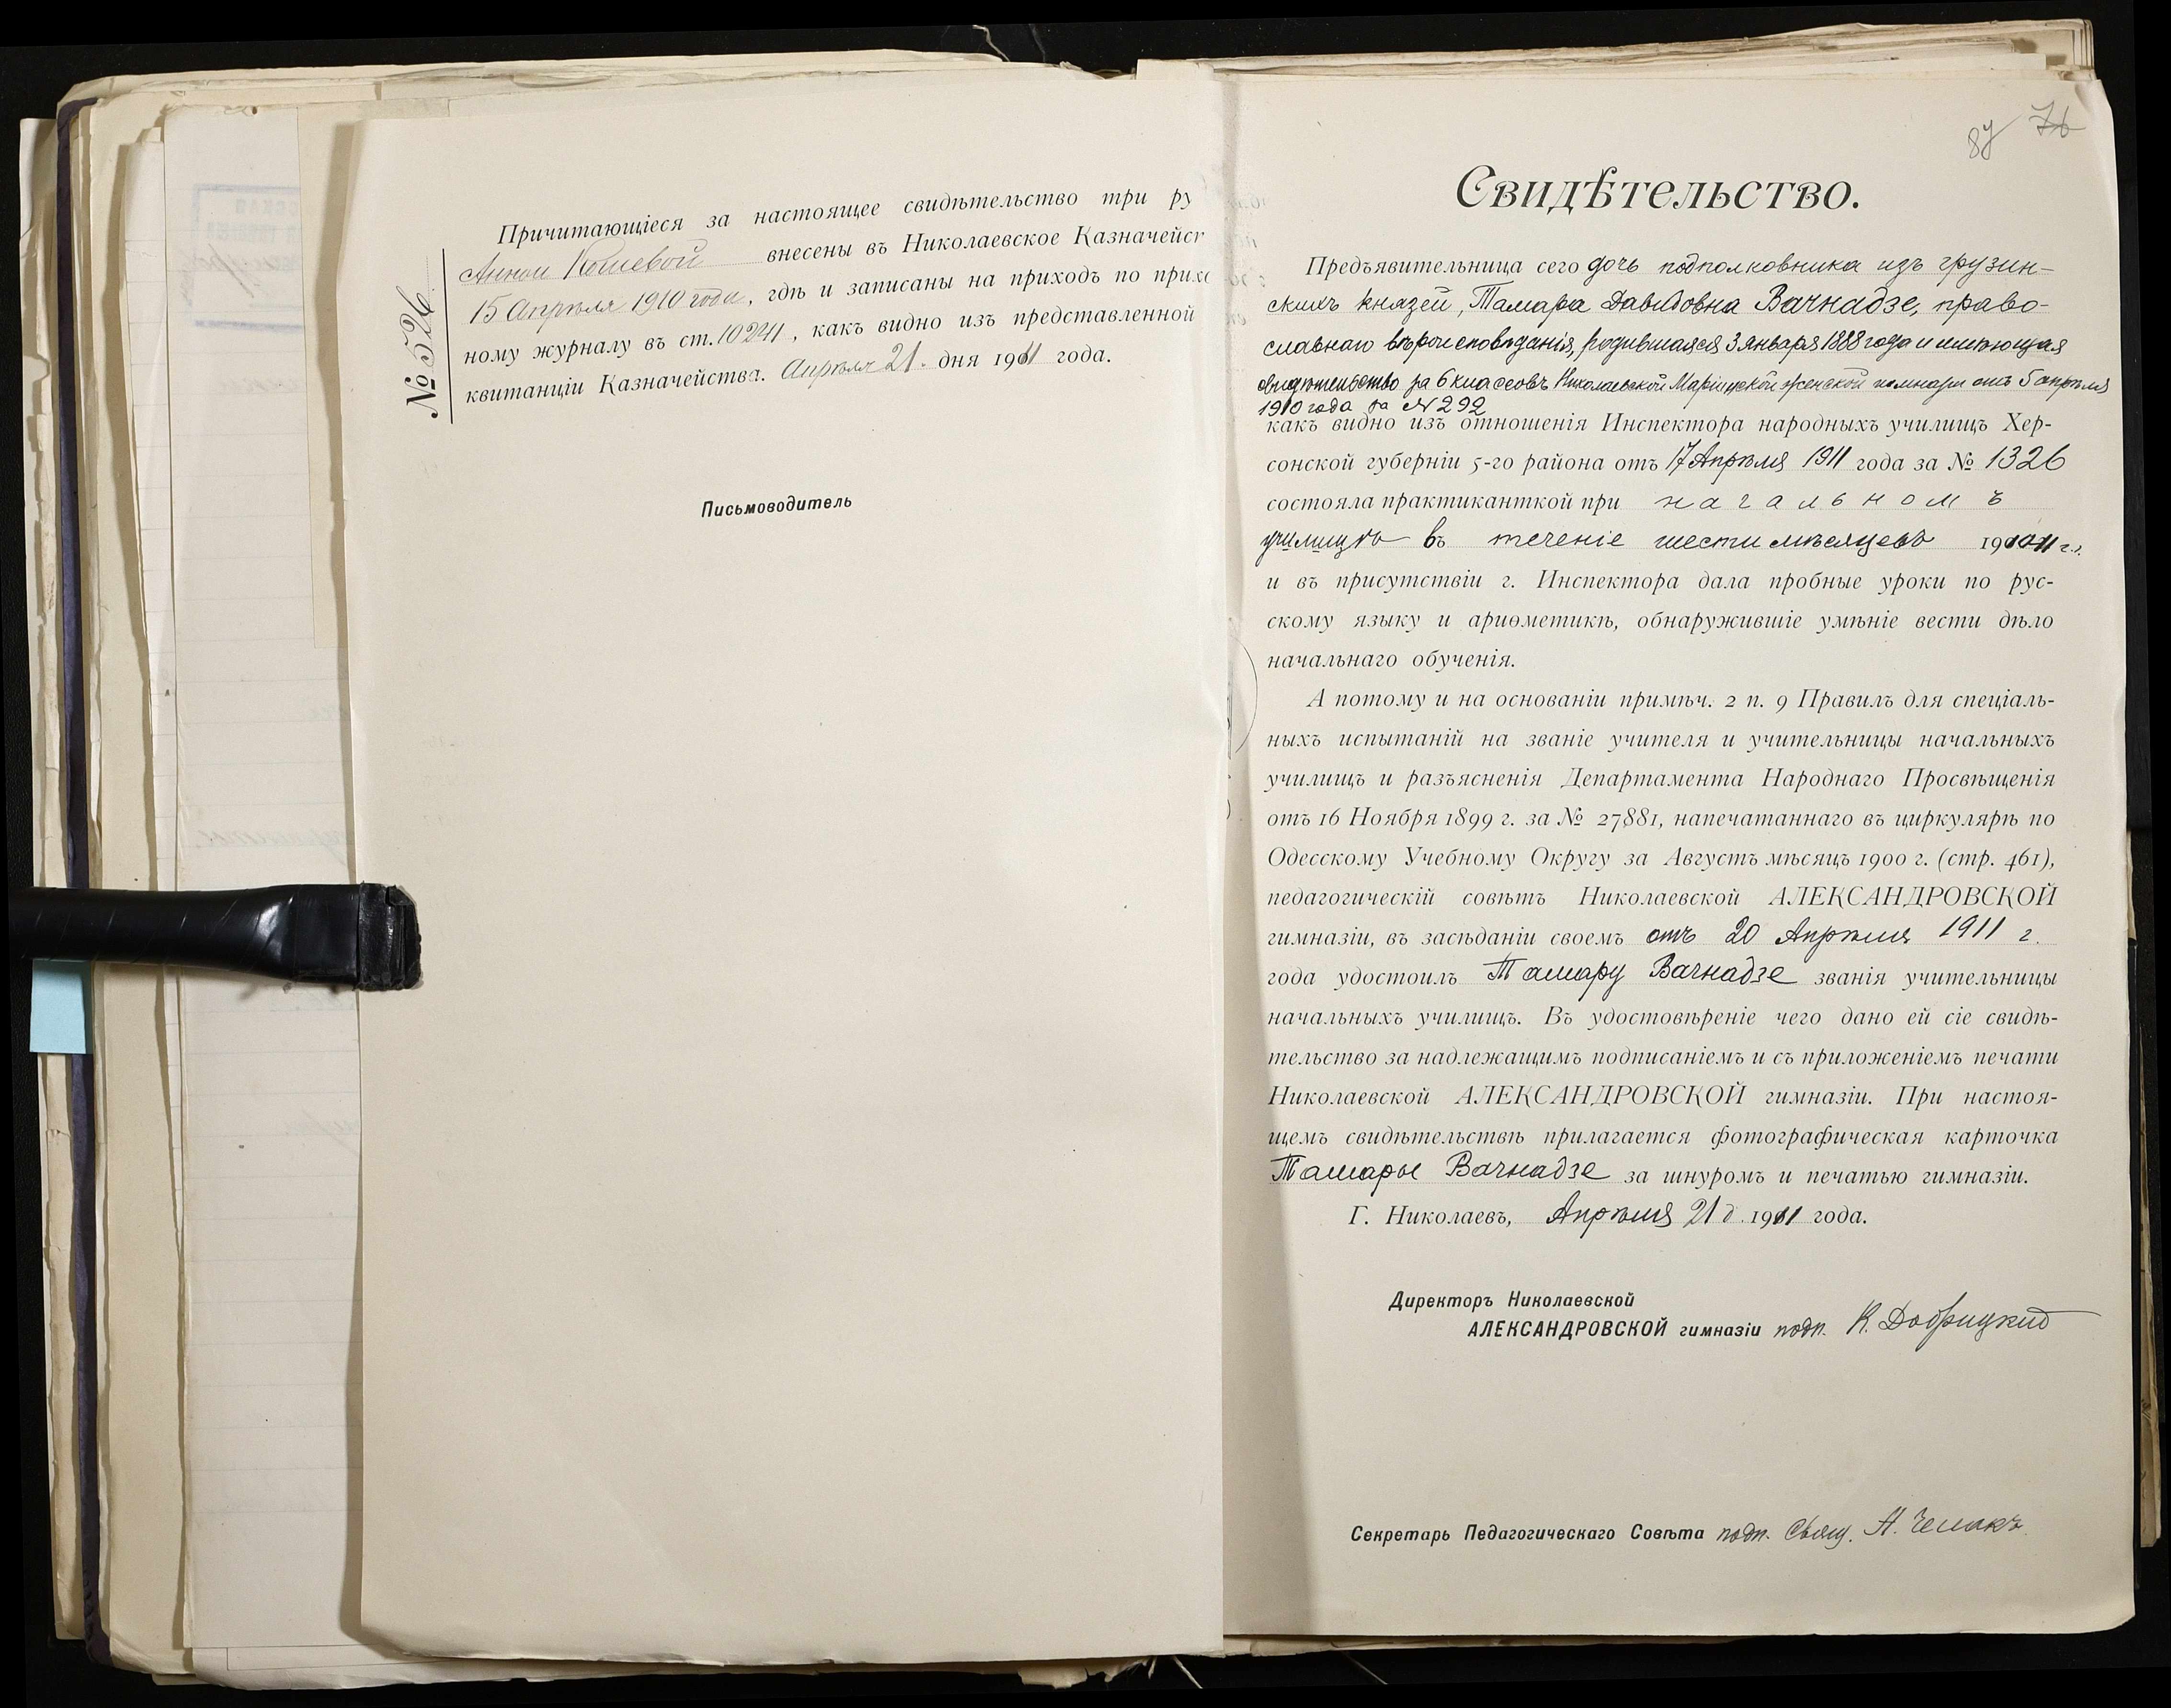 № 526
Причитающіеся за настоящее свидѣтельство три ру
Анною Кошевой внесены въ Николаевское Казначейст
15 Апрѣля 1910 года, гдѣ и записаны на приходъ по прихо
ному журналу въ ст. 10241, какъ видно изъ представленной
квитанціи Казначейства. Апрѣля 21. дня 1911 года.
Письмоводитель
87 76
Свидѣтельство.
Предъявительница сего дочь подполковника изъ грузин-
скихъ князей, Тамара Давидовна Вачнадзе, право-
славнаго вѣроисповѣданія, родившаяся 3 января 1888 года и имѣющая
свидѣтельство за 6 классовъ Николаевской Маріинской женской гимназіи отъ 5 апрѣля
1910 года за № 292
какъ видно изъ отношенія Инспектора народныхъ училищъ Хер-
сонской губерніи 5-го района отъ 17 Апрѣля 1911 года за № 1326
состояла практиканткой при начальномъ
училищѣ въ теченіе шести мѣсяцевъ 1910-11 г.г.
и въ присутствіи г. Инспектора дала пробные уроки по рус-
скому языку и ариѳметикѣ, обнаружившіе умѣніе вести дѣло
начальнаго обученія.
А потому и на основаніи примѣч. 2 п. 9 Правилъ для спеціаль-
ныхъ испытаній на званіе учителя и учительницы начальныхъ
училищъ и разъясненія Департамента Народнаго Просвѣщенія
отъ 16 Ноября 1899 г. за № 27881, напечатаннаго въ циркулярѣ по
Одесскому Учебному Округу за Августъ мѣсяцъ 1900 г. (стр. 461),
педагогическій совѣтъ Николаевской АЛЕКСАНДРОВСКОЙ
гимназіи, въ засѣданіи своемъ отъ 20 Апрѣля 1911 г.
года удостоилъ Тамару Вачнадзе званія учительницы
начальныхъ училищъ. Въ удостовѣреніе чего дано ей сіе свидѣ-
тельство за надлежащимъ подписаніемъ и съ приложеніемъ печати
Николаевской АЛЕКСАНДРОВСКОЙ гимназіи. При настоя-
щемъ свидѣтельствѣ прилагается фотографическая карточка
Тамары Вачнадзе за шнуромъ и печатью гимназіи.
Г. Николаевъ, Апрѣля 21 д. 1911 года.
Директоръ Николаевской
АЛЕКСАНДРОВСКОЙ гимназіи подп. К. Добрицкій
Секретарь Педагогическаго Совѣта подп. Свящ. А. Чемакъ